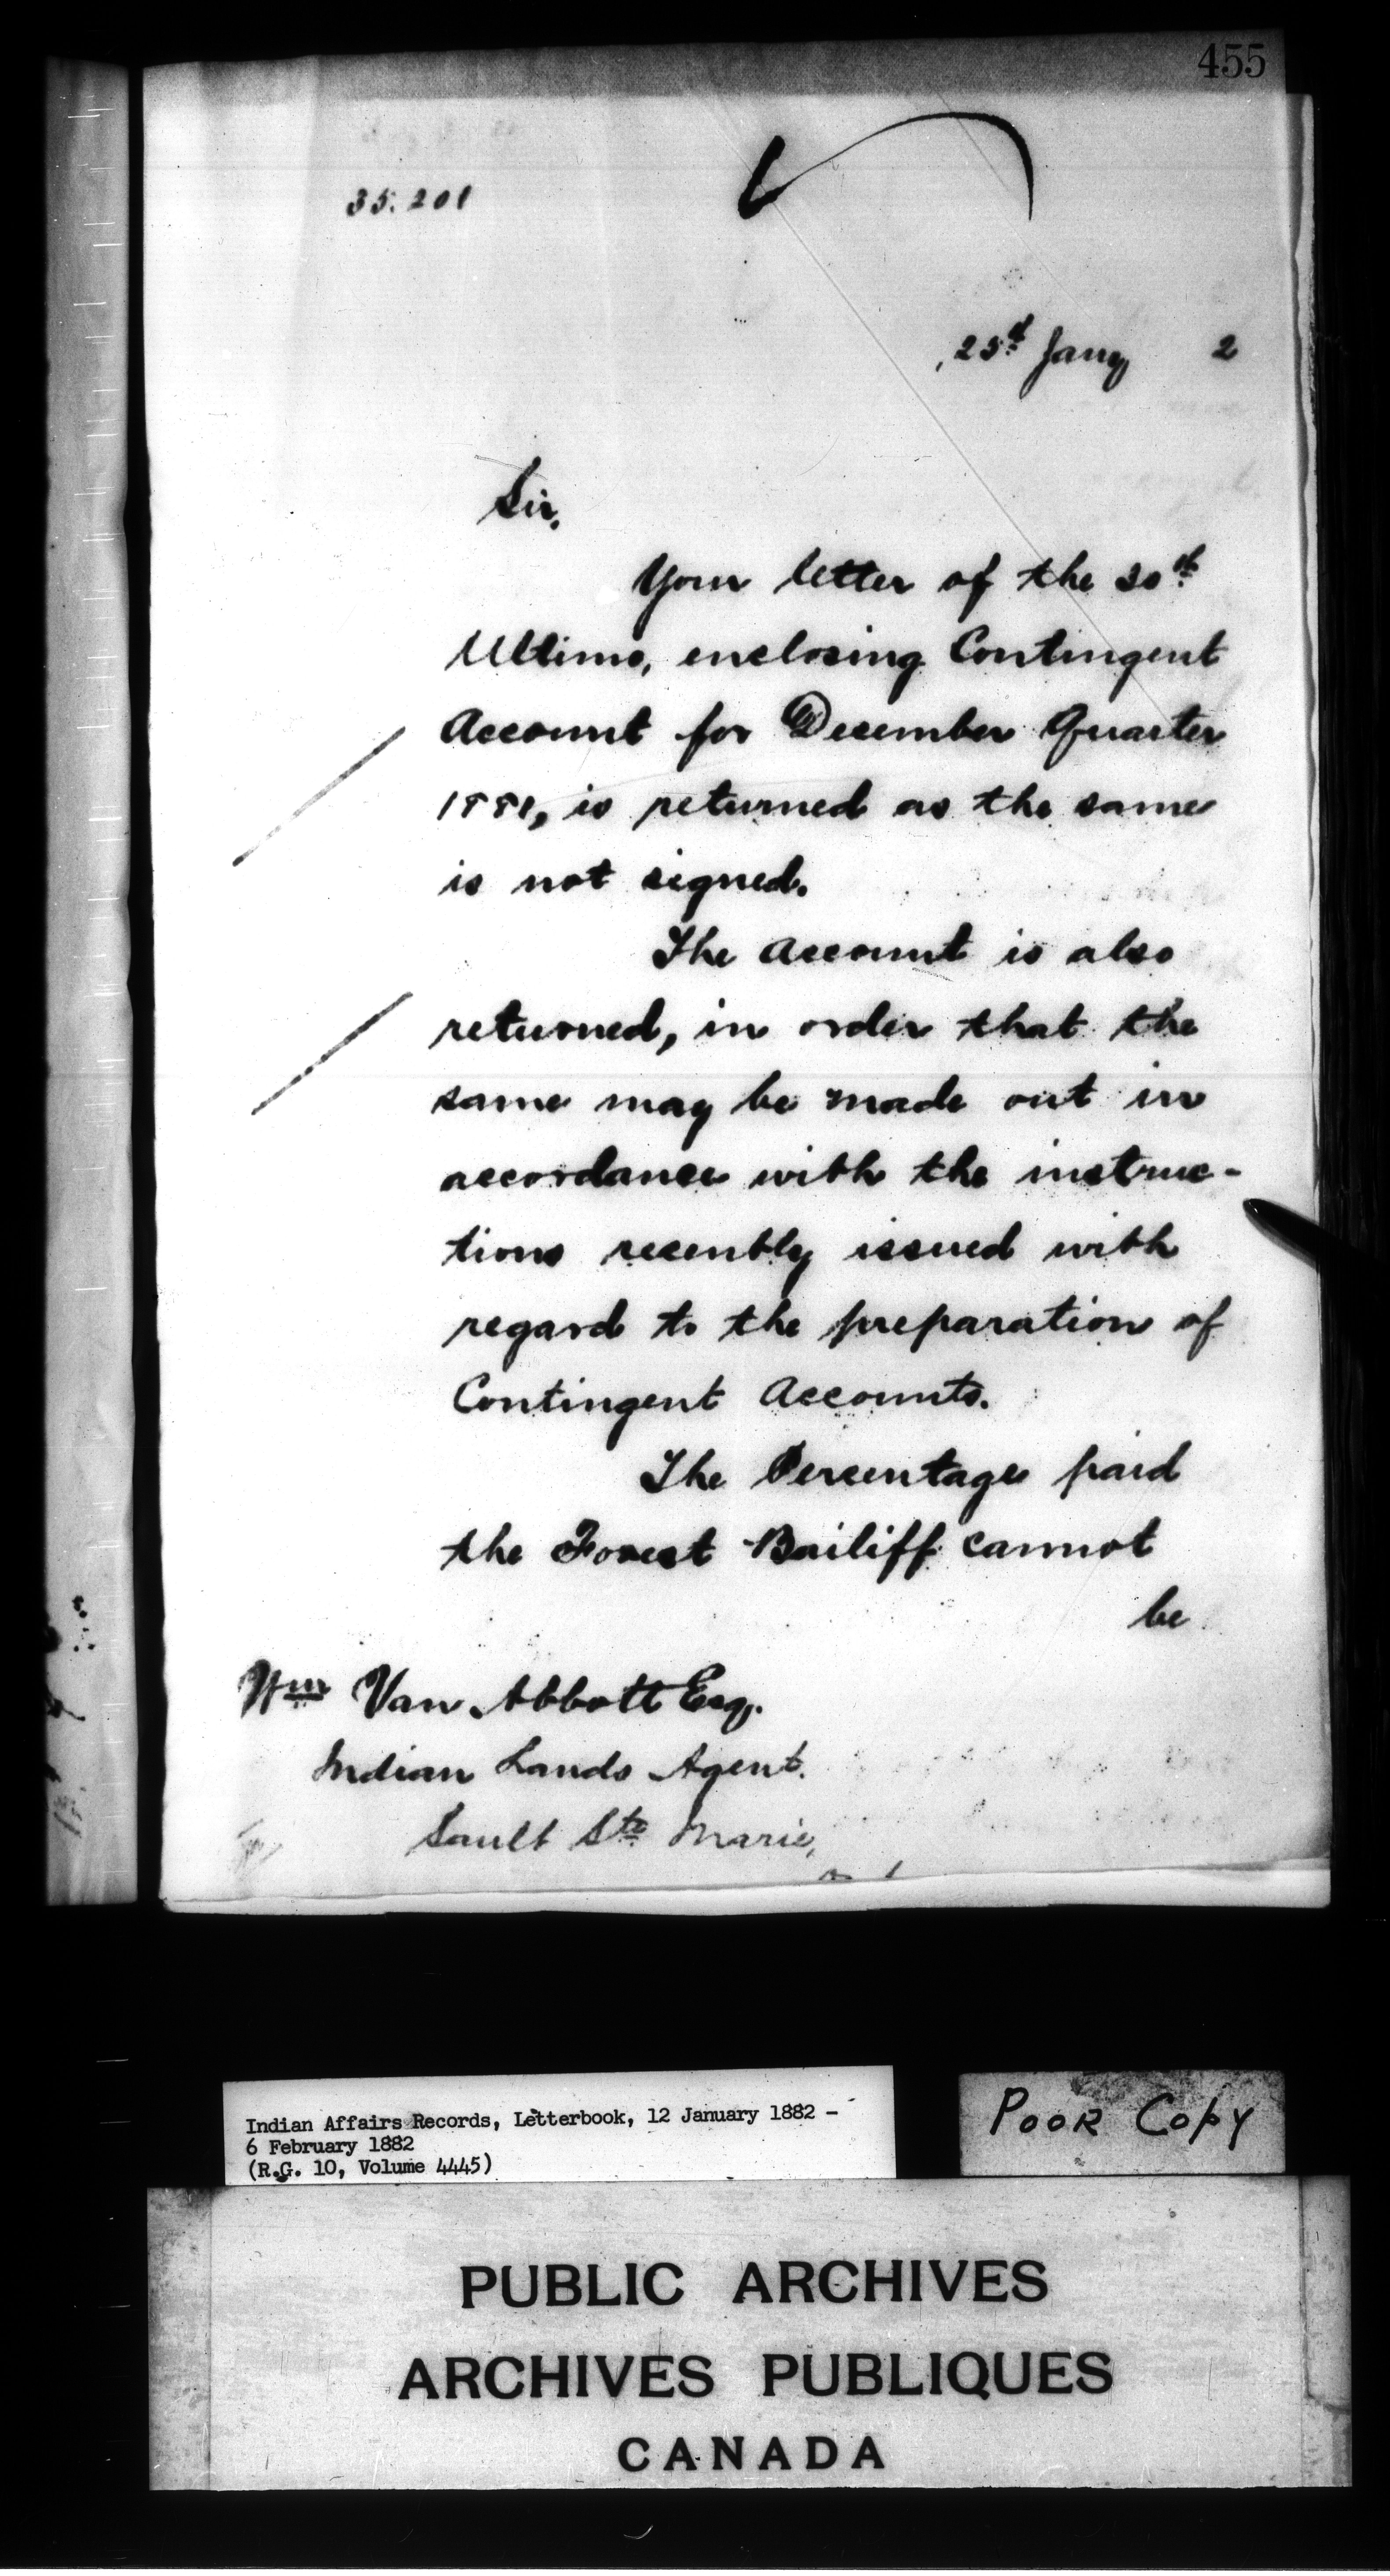 455
35.201
25th Jany 2
Sir,
Your letter of the 30th
Ultimo, enclosing Contingent
Account for December Quarter
1881, is returned as the same
is not signed.
The Account is also
returned, in order that the
same may be made out in
accordance with the instruc-
tions recently issued with
regard to the preparation of
Contingent Accounts.
The Percentage paid
the Forest Bailiff cannot
be
Wm Van Abbott Esq.
Indian Lands Agent.
Sault Ste Marie,
Indian Affairs Records, Letterbook, 12 January 1882 -
6 February 1882
(R.G. 10, Volume 4445)
POOR COPY
PUBLIC ARCHIVES
ARCHIVES PUBLIQUES
CANADA